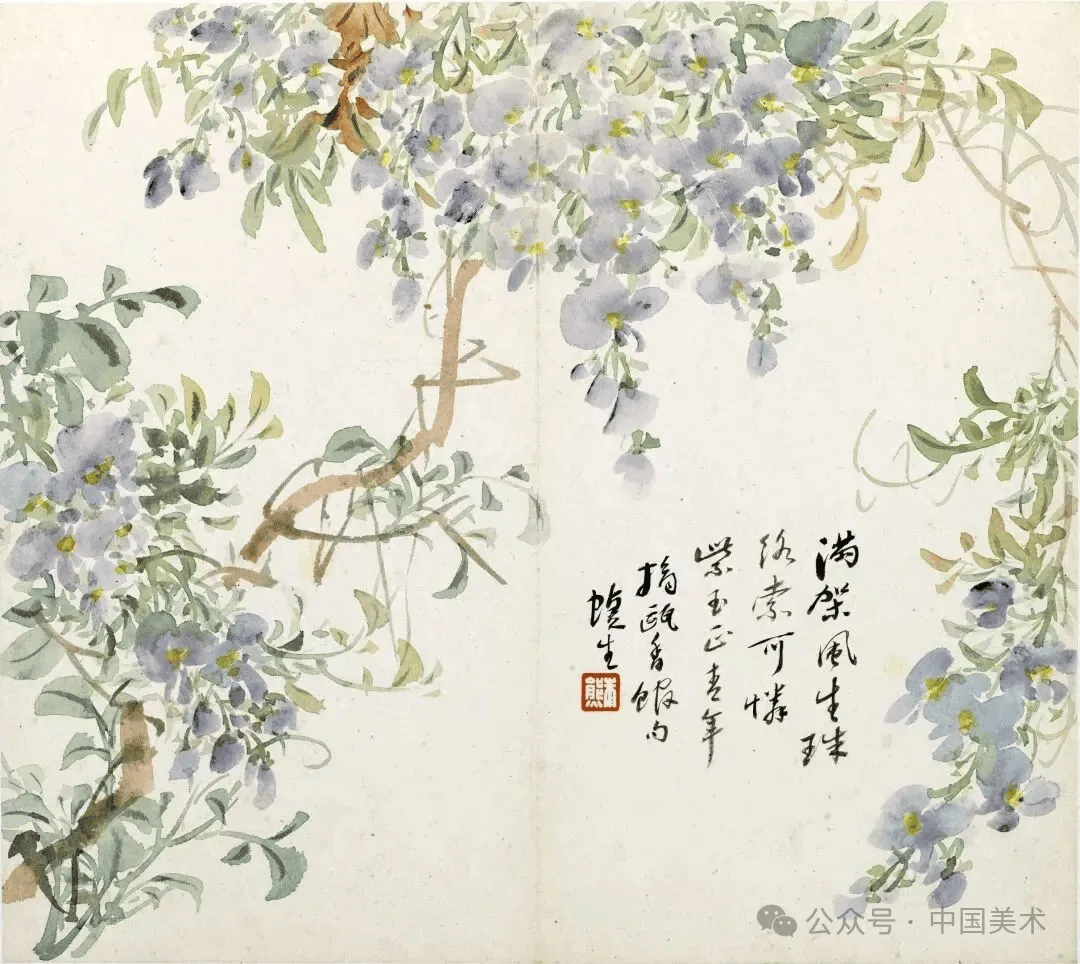 滿架風生珠
絡索可憐
紫玉正青年
摘甌香館句
蝶生
朱熊
公众号 · 中国美术